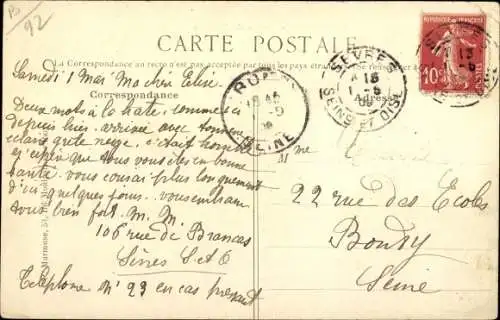 92
CARTE POSTALE
La Correspondance au recto n'est pas acceptée par tous les pays étrangers
Correspondance
Adresse
RÉPUBLIQUE FRANÇAISE
10
SÈVRES
SEINE ET OISE
SEINE
Samedi 1 Mai Ma chère Elise
Deux mots à la hate,
depuis hier arrivée avec
grêle neige, c'était
j'espère que vous vous êtes en bonne
santé vous plus longuement
d'ici quelques jours vous embrasse
tous bien fort M. M.
106 rue de Brancas
Sèvres S. et O.
Téléphone N° 23 en cas pressant
Mme
22 rue des Ecoles
Bondy
Seine